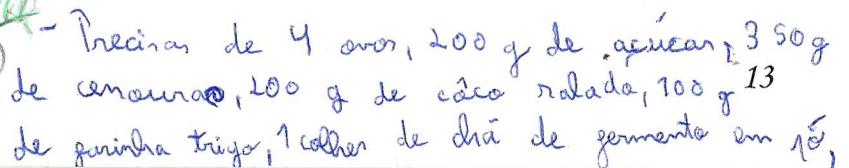 - Precisas de 4 ovos, 200 g de açúcar, 350g
de cenoura, 200 g de côco ralado, 100 g 13
de farinha trigo, 1 colher de chá de fermento em pó,